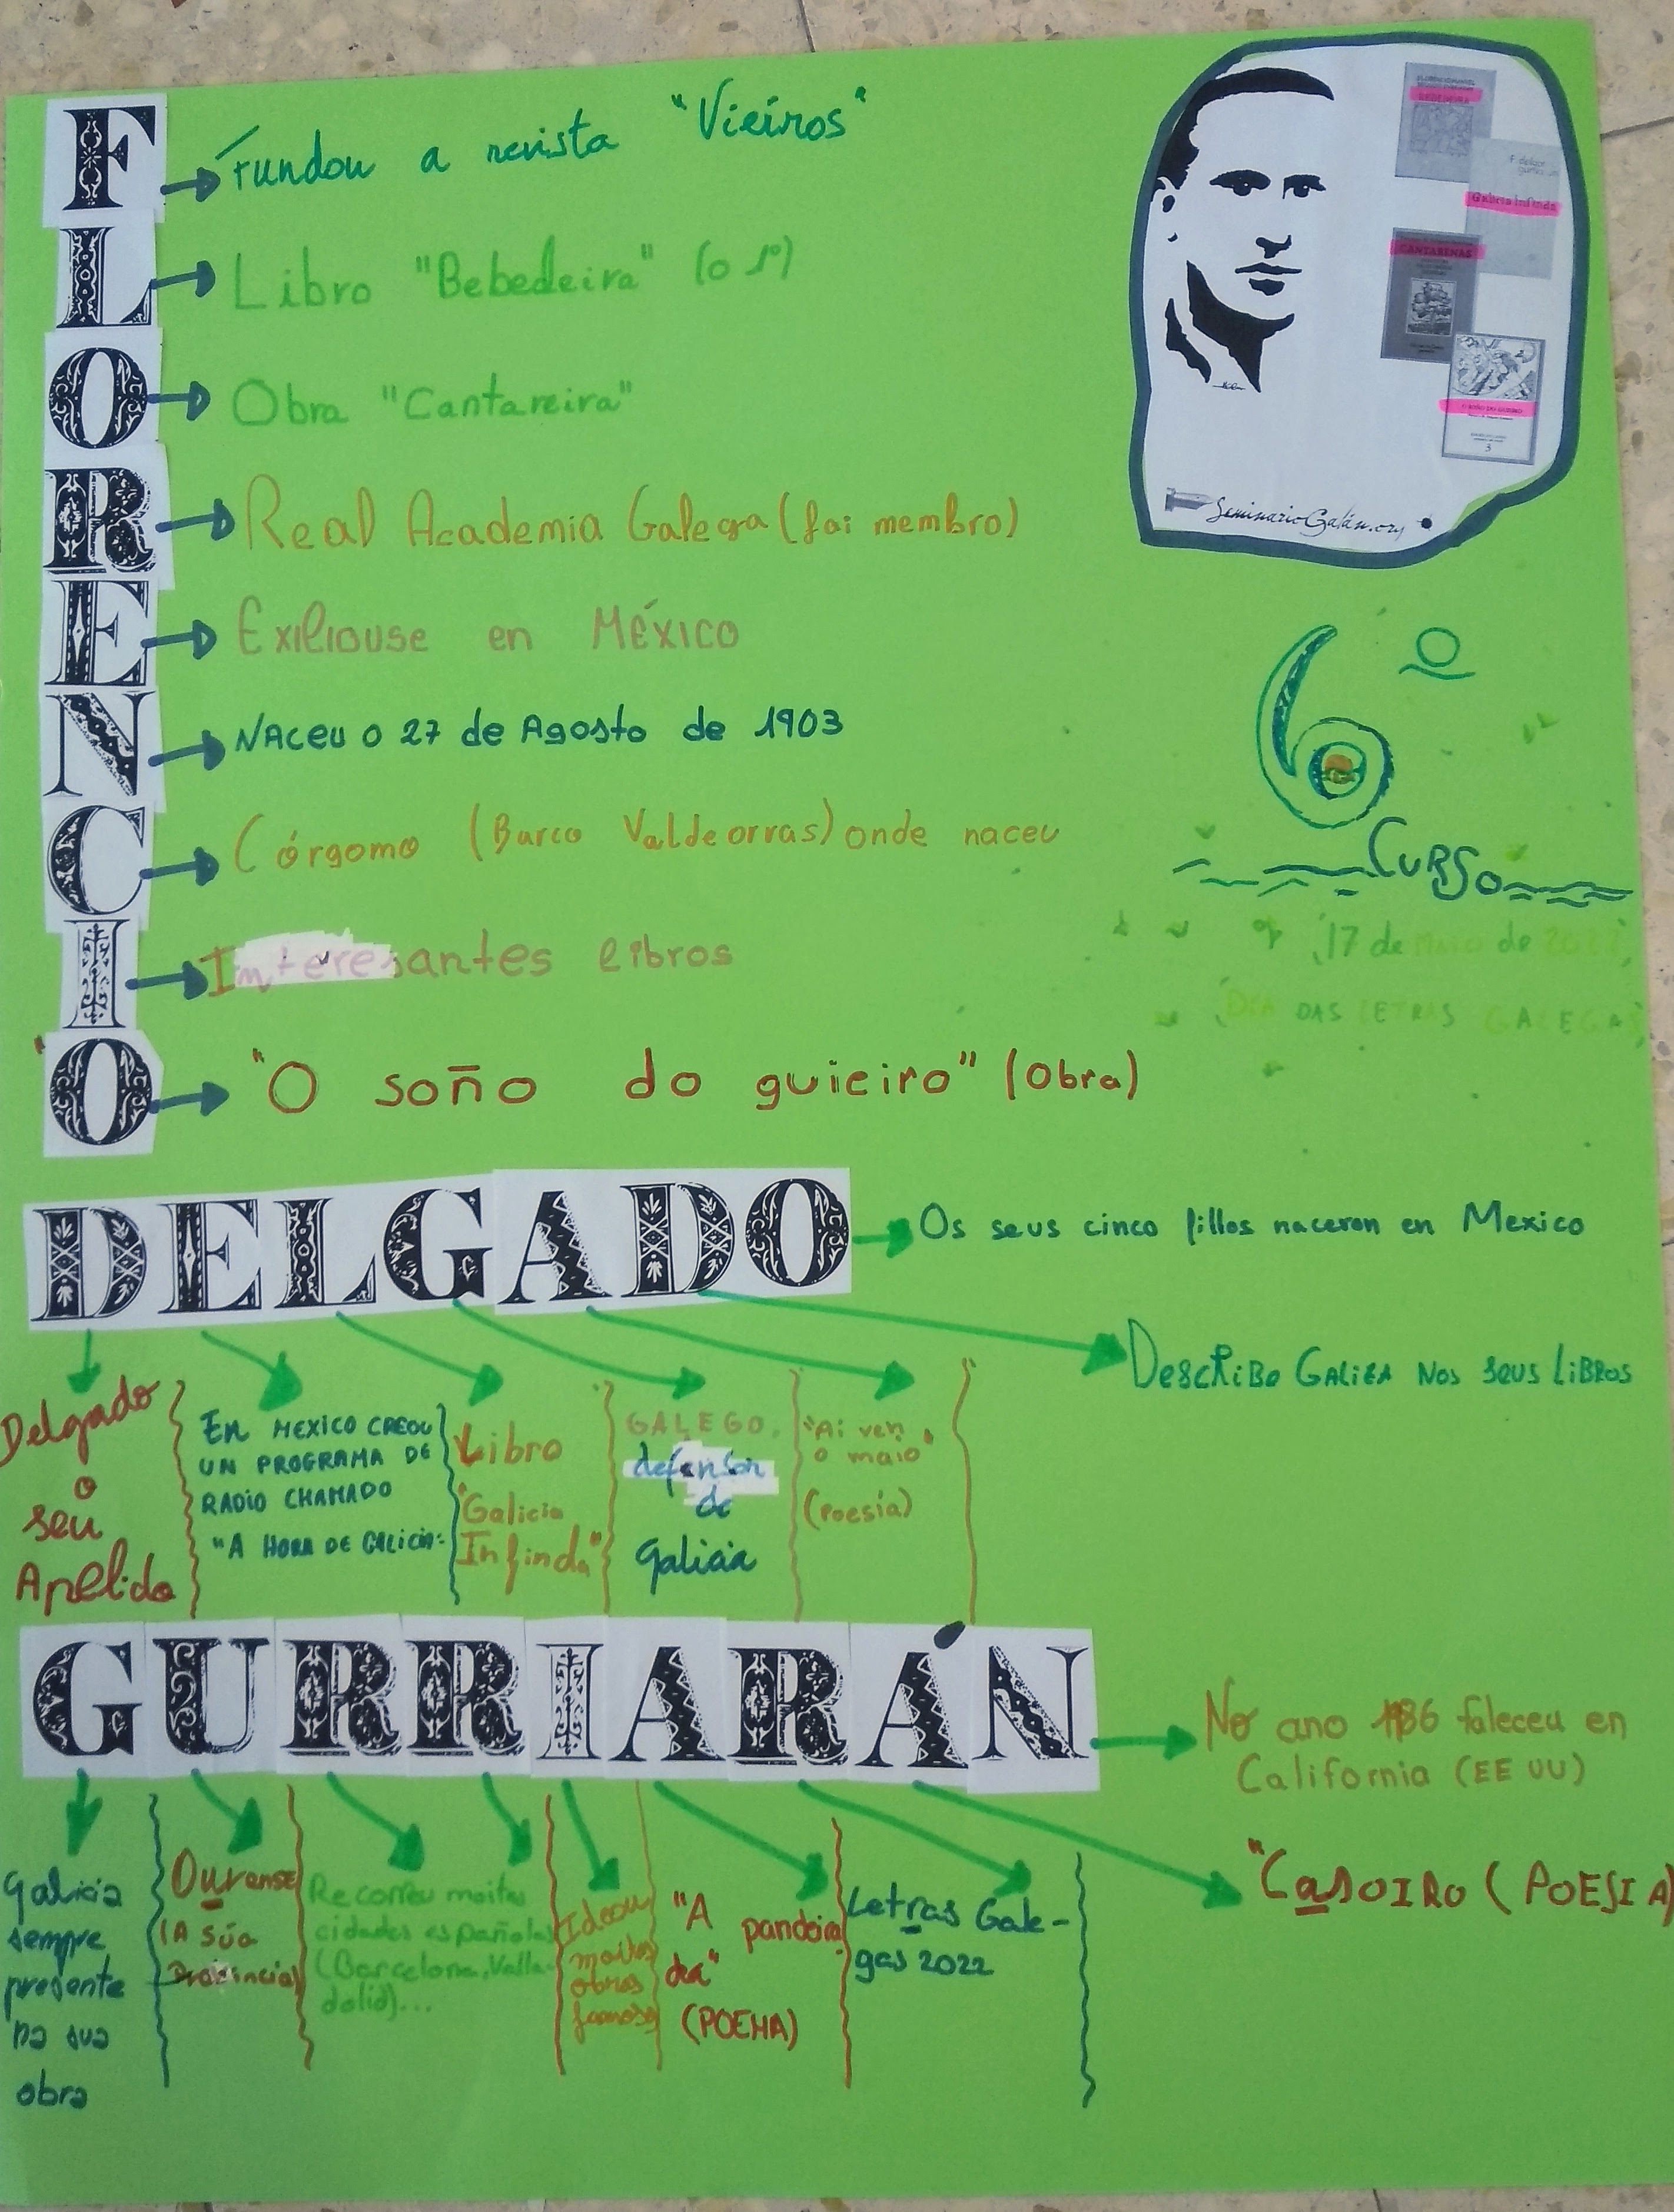 F
Fundou a revista "Vieiros"
L
Libro "Bebedeira" (o 1º)
O
Obra "Cantareira"
R
Real Academia Galega (foi membro)
E
Exiliouse en MÉXICO
N
Naceu o 27 de Agosto de 1903
C
Córgomo (Barco Valdeorras) onde naceu
I
Interesantes libros
O
"O soño do guieiro" (Obra)
BEBEDEIRA
Galicia infinda
CANTARENAS
O SOÑO DO GUIEIRO
3
SeminarioGalán.org
6º
CURSO
17 de MAIO de 2022
DÍA DAS LETRAS GALEGAS
DELGADO
Os seus cinco fillos naceron en Mexico
Describe GALIZA NOS SEUS LIBROS
Delgado
o
seu
Apelido
EN MEXICO CREOU
UN PROGRAMA DE
RADIO CHAMADO
"A HORA DE GALICIA"
Libro
"Galicia
Infinda"
GALEGO,
defensor
de
Galicia
"Ai ven
o maio"
(poesía)
GURRIARÁN
No ano 1986 faleceu en
California (EE UU)
"CASOIRO (POESIA)
Galicia
sempre
presente
na sua
obra
Ourense
(A súa
Provincia)
Recorreu moitas
cidades españolas
(Barcelona, Valla-
dolid)...
Ideou
moitas
obras
famosas
"A pandeira
da"
(POEMA)
Letras Gale-
gas 2022